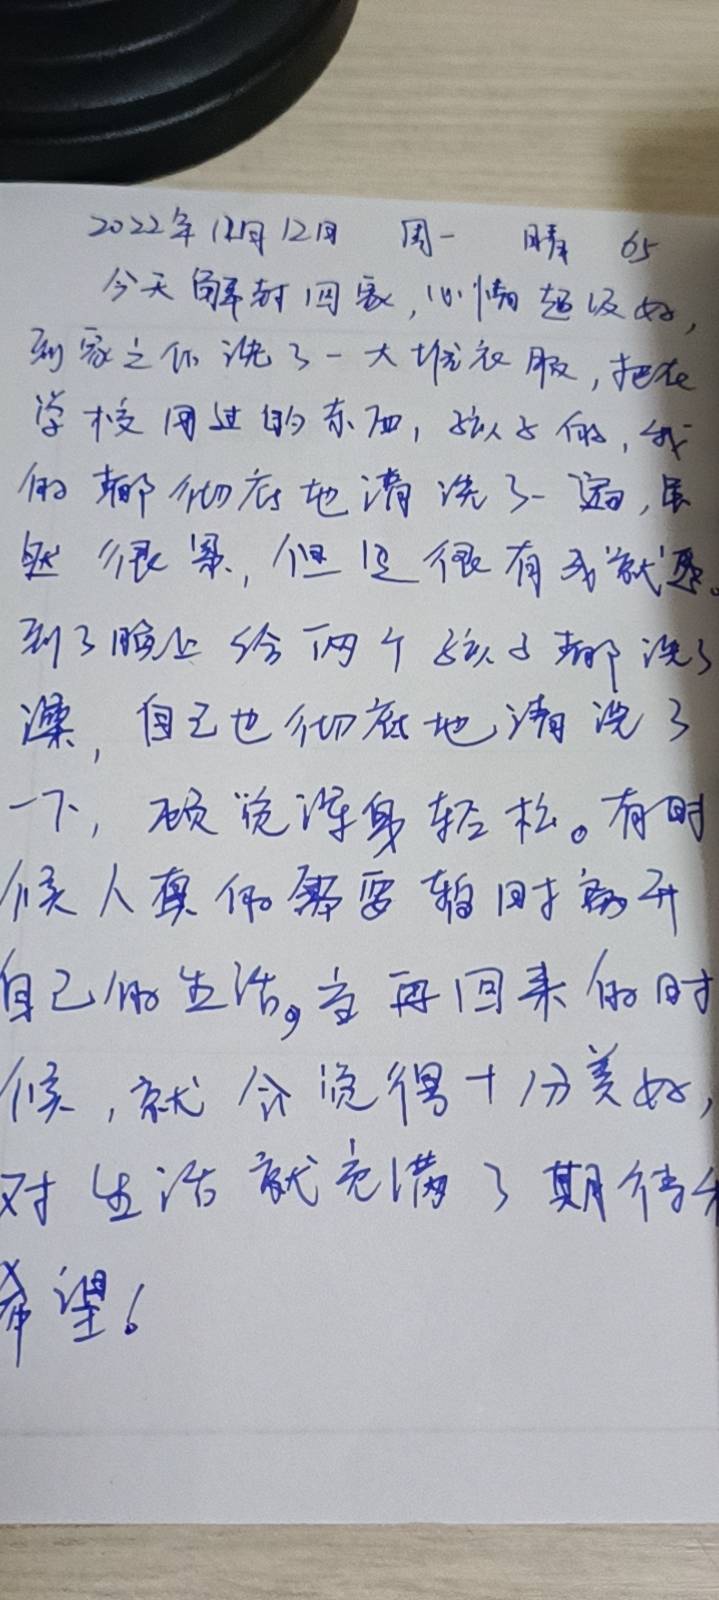 2022年12月12日 周一 晴 65
今天解封回家,心情超级好,
到家之后洗了一大堆衣服,把在
学校用过的东西,孩子的,我
的都彻底地清洗了一遍,虽
然很累,但是很有成就感。
到了晚上给两个孩子都洗了
澡,自己也彻底地清洗了
一下,顿觉浑身轻松。有时
候人真的需要暂时离开
自己的生活。当再回来的时
候,就会觉得十分美好,
对生活就充满了期待和
希望!